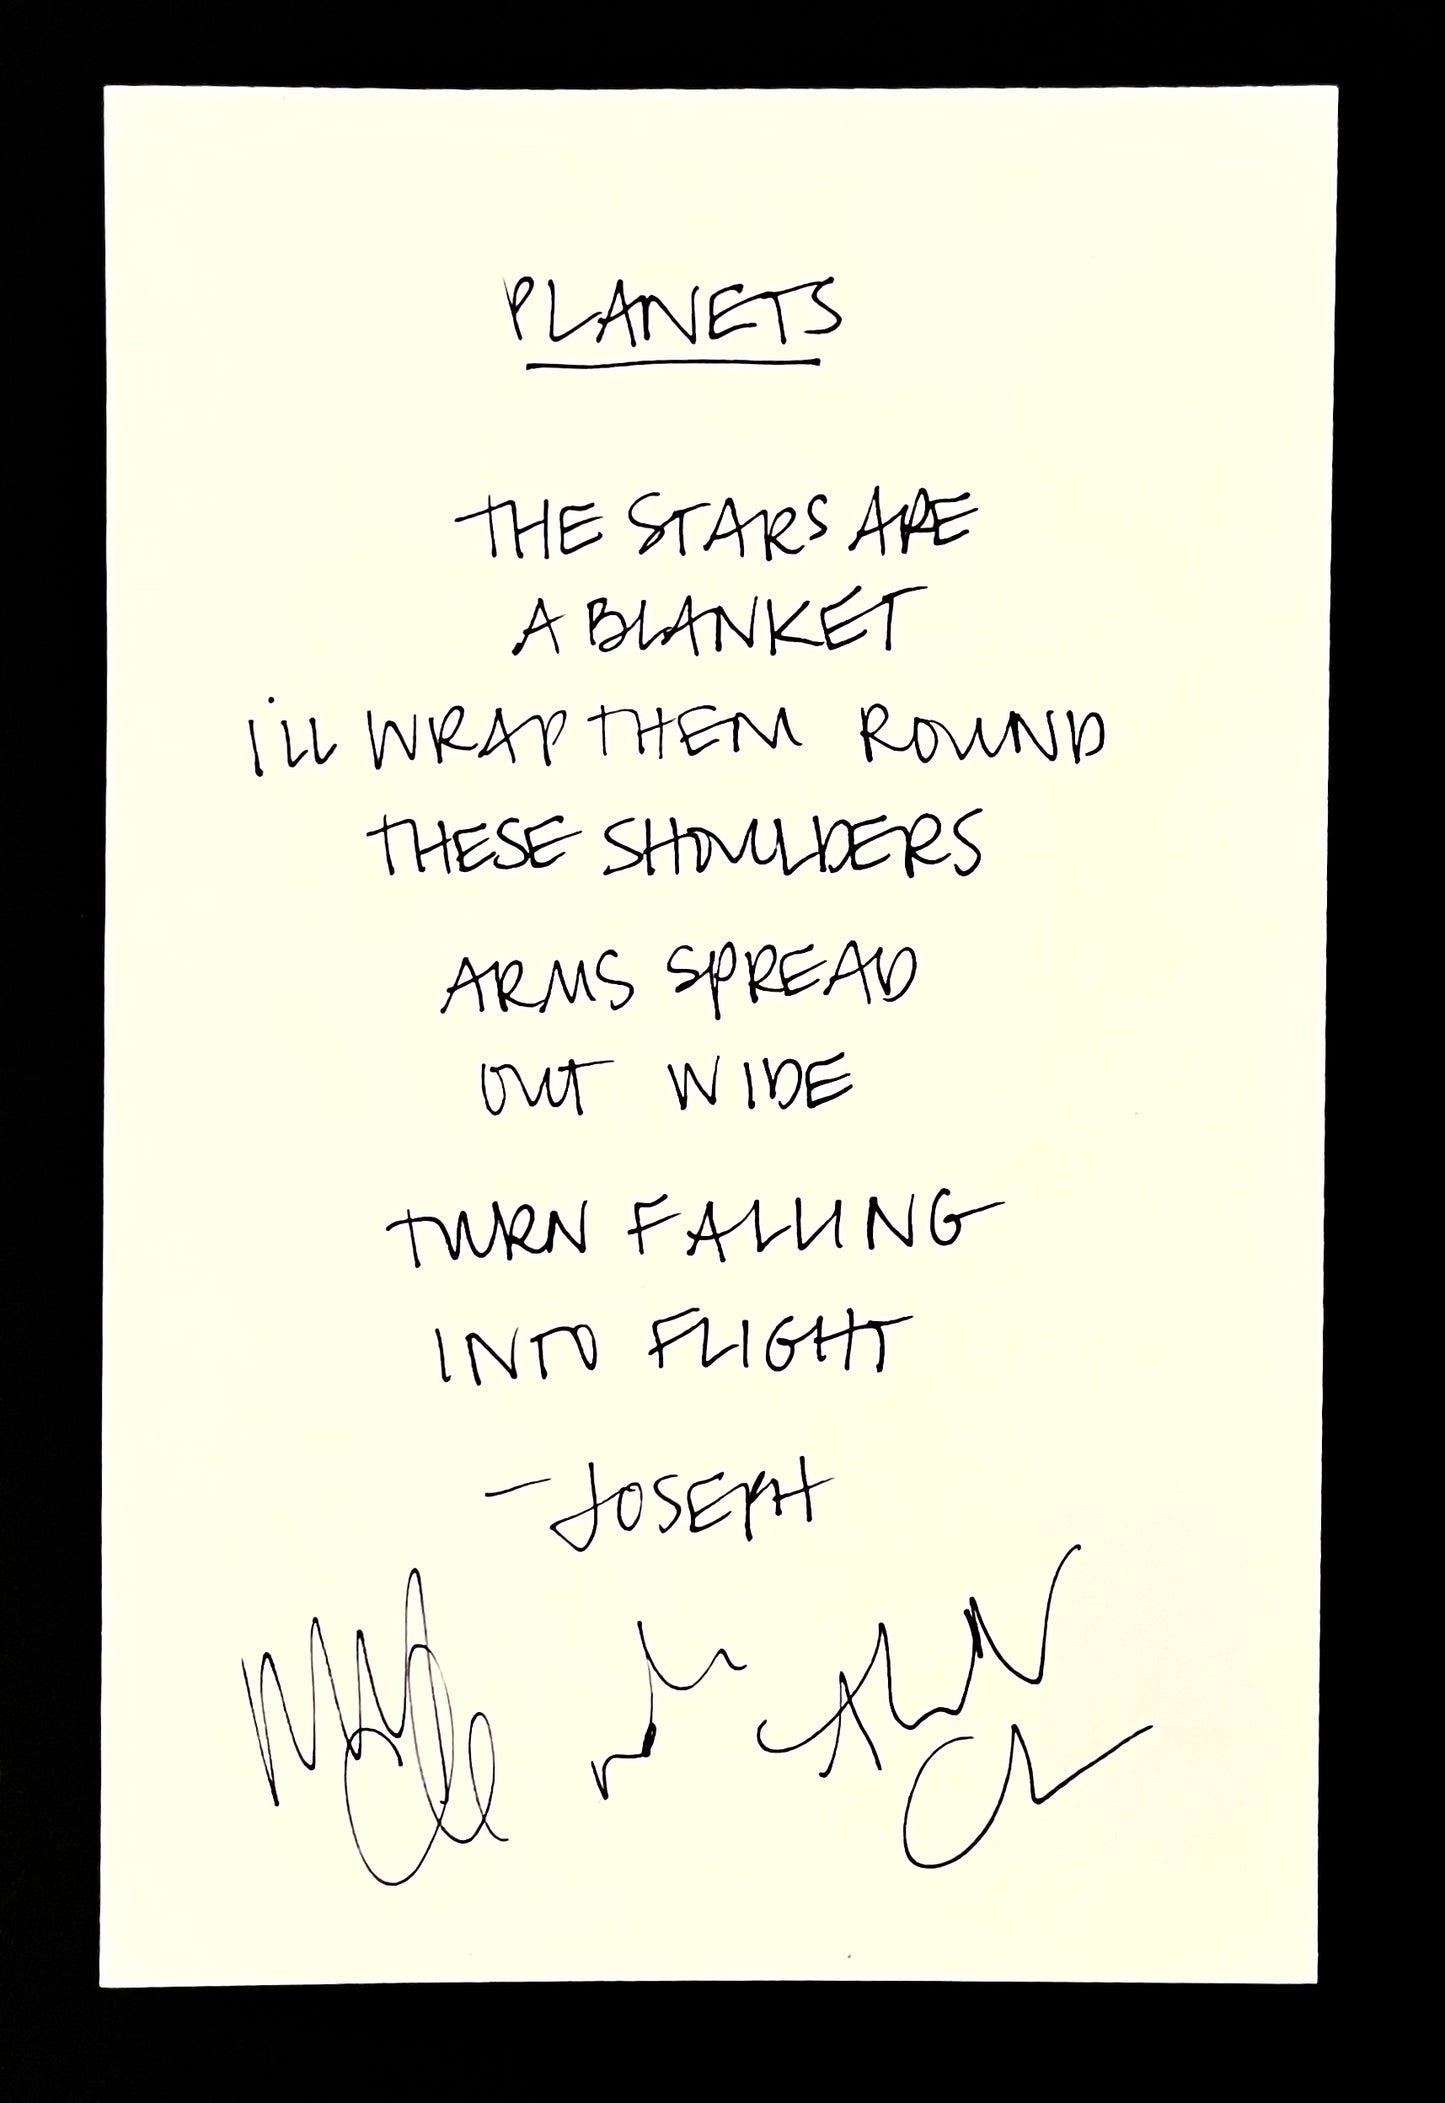 PLANETS
THE STARS ARE
A BLANKET
I'LL WRAP THEM ROUND
THESE SHOULDERS
ARMS SPREAD
OUT WIDE
TURN FALLING
INTO FLIGHT
- JOSEPH